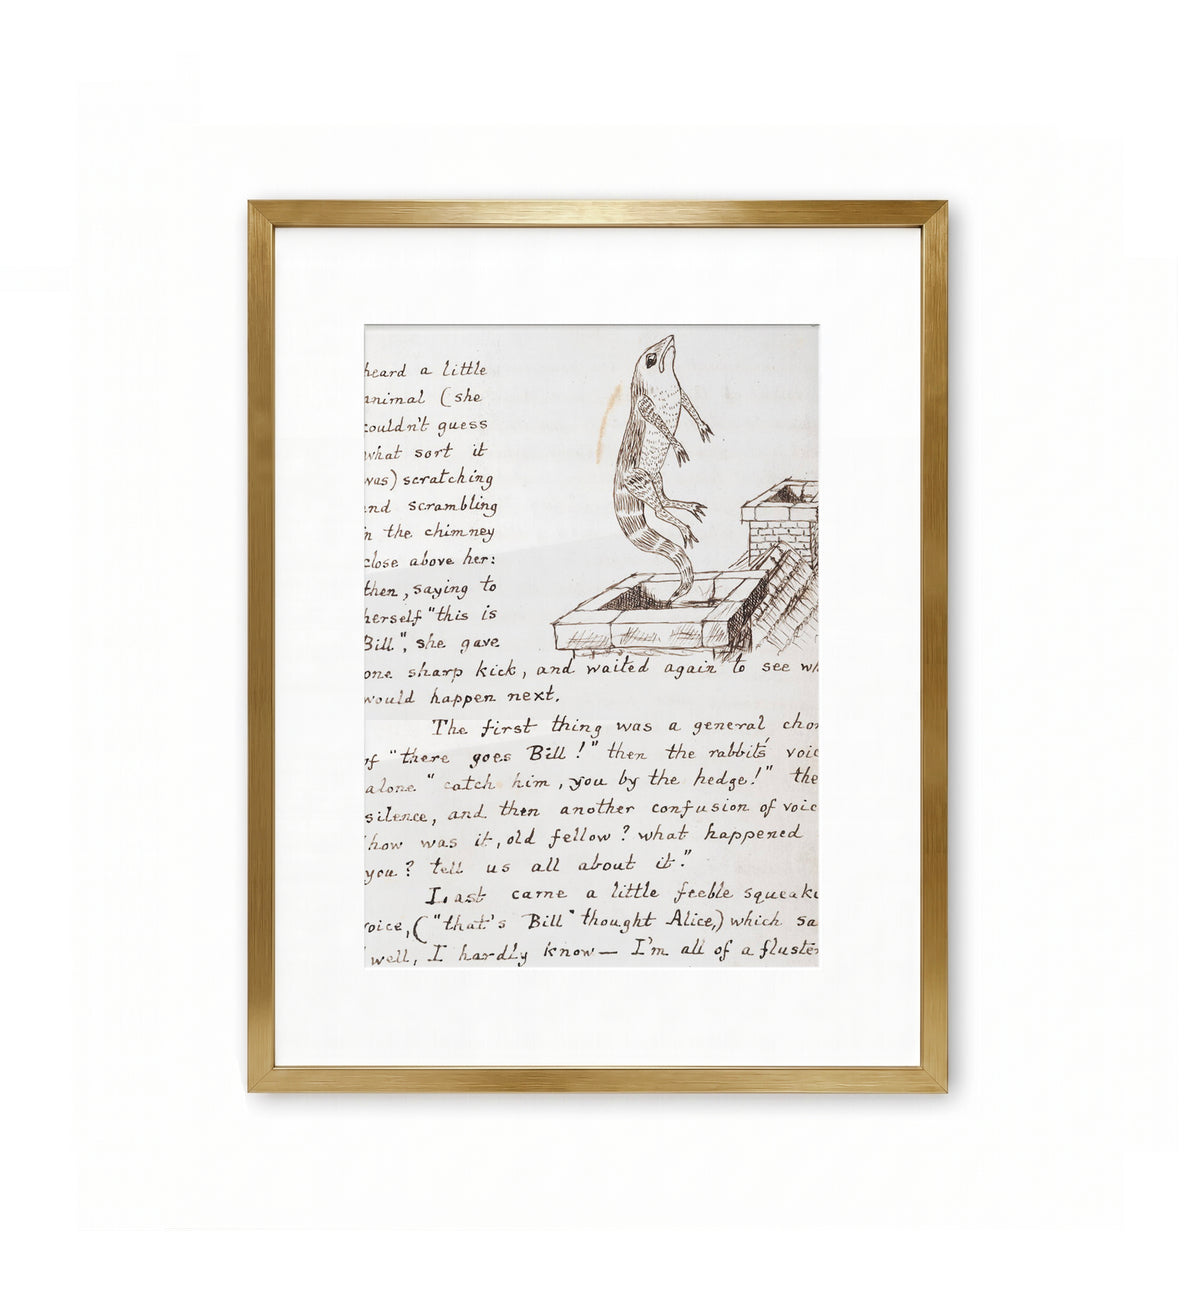 heard a little
animal (she
couldn't guess
what sort it
was) scratching
and scrambling
in the chimney
close above her:
then, saying to
herself "this is
Bill", she gave
one sharp kick, and waited again to see wh
would happen next.
The first thing was a general cho
of "there goes Bill!" then the rabbit's voic
alone "catch him, you by the hedge!" the
silence, and then another confusion of voic
"how was it, old fellow? what happened
you? tell us all about it."
Last came a little feeble squeak
voice, ("that's Bill" thought Alice,) which sa
well, I hardly know— I'm all of a fluster